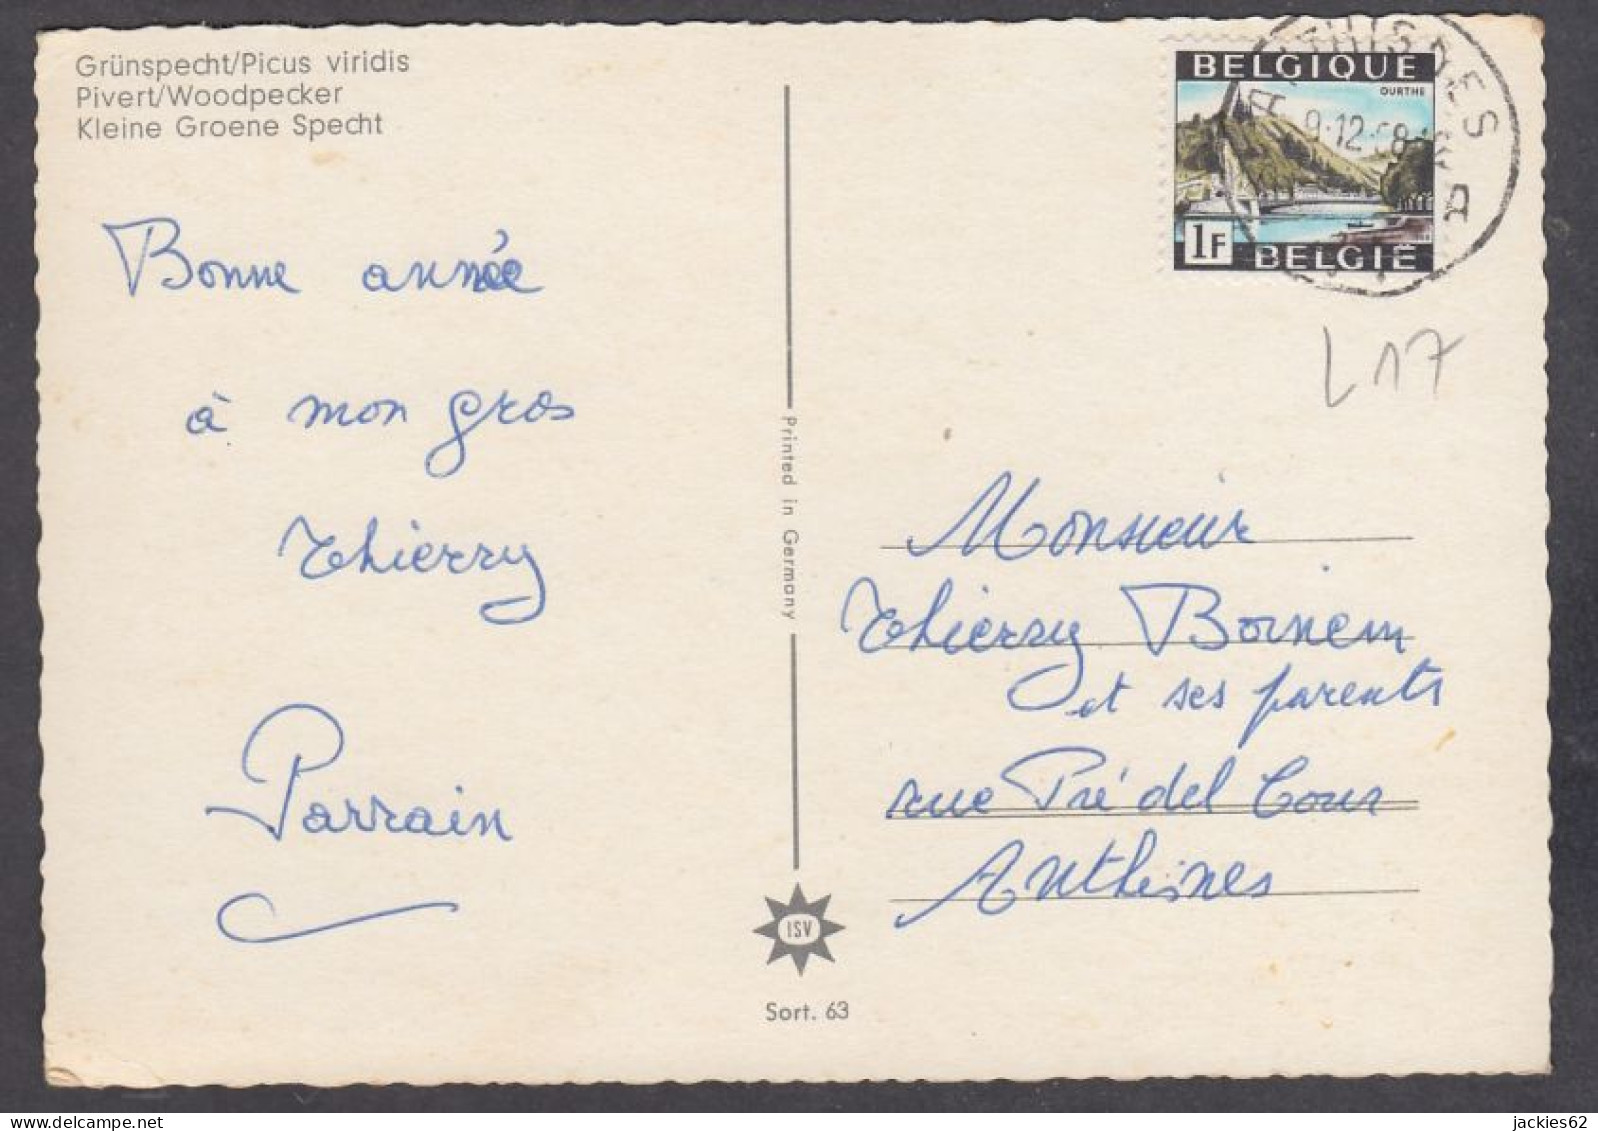 Grünspecht/Picus viridis
Pivert/Woodpecker
Kleine Groene Specht
Bonne année
à mon gros
Thierry
Parrain
Printed in Germany
ISV
Sort. 63
BELGIQUE
OURTHE
1F
BELGIË
9-12
L17
Monsieur
Thierry Boinem
et ses parents
rue Pré del Cour
Anthisnes
jackies62